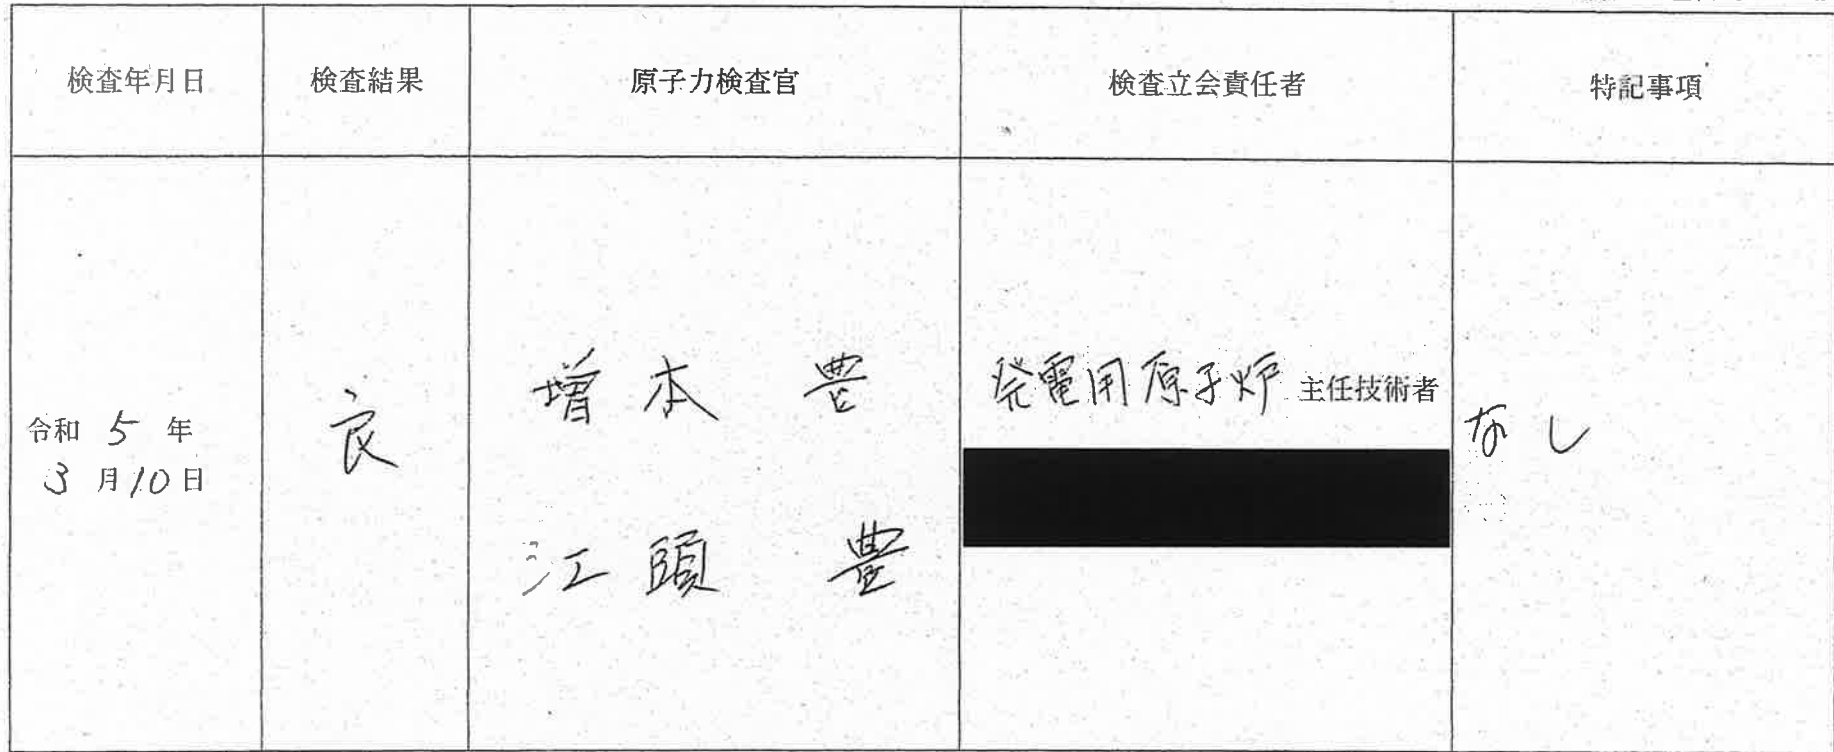 検査年月日 検査結果 原子力検査官 検査立会責任者 特記事項
令和 5 年
3 月 10 日
良
増本 豊
江頭 豊
発電用原子炉 主任技術者
なし